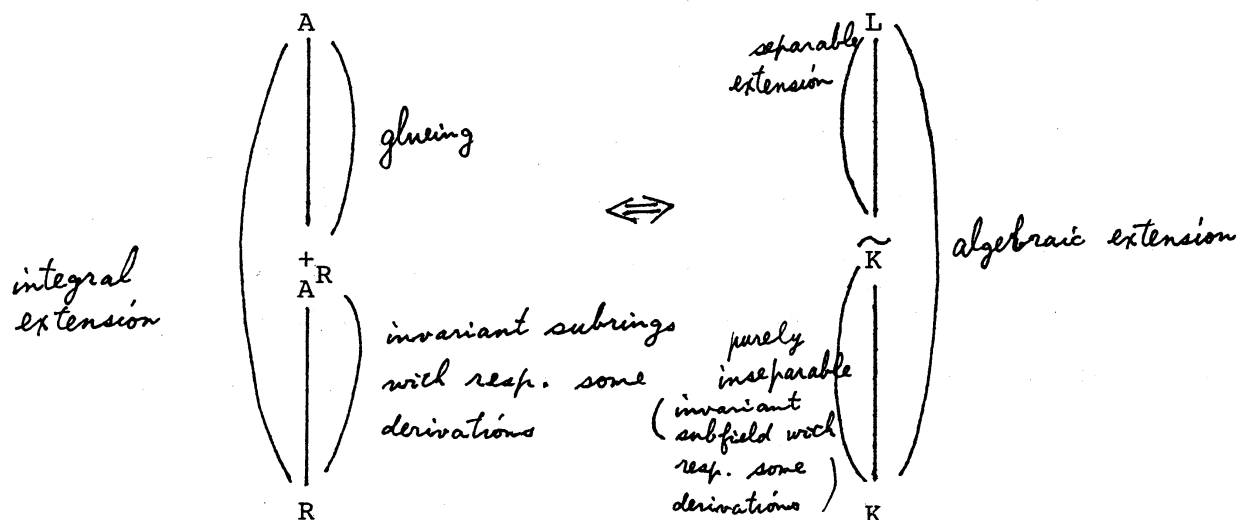 A
glueing
integral
extensión
+
A
R
invariant subrings
with resp. some
derivatións
R
⇔
L
separable
extensión
~
K
algebraic extension
purely
inseparable
(invariant
subfield with
resp. some
derivatións)
K